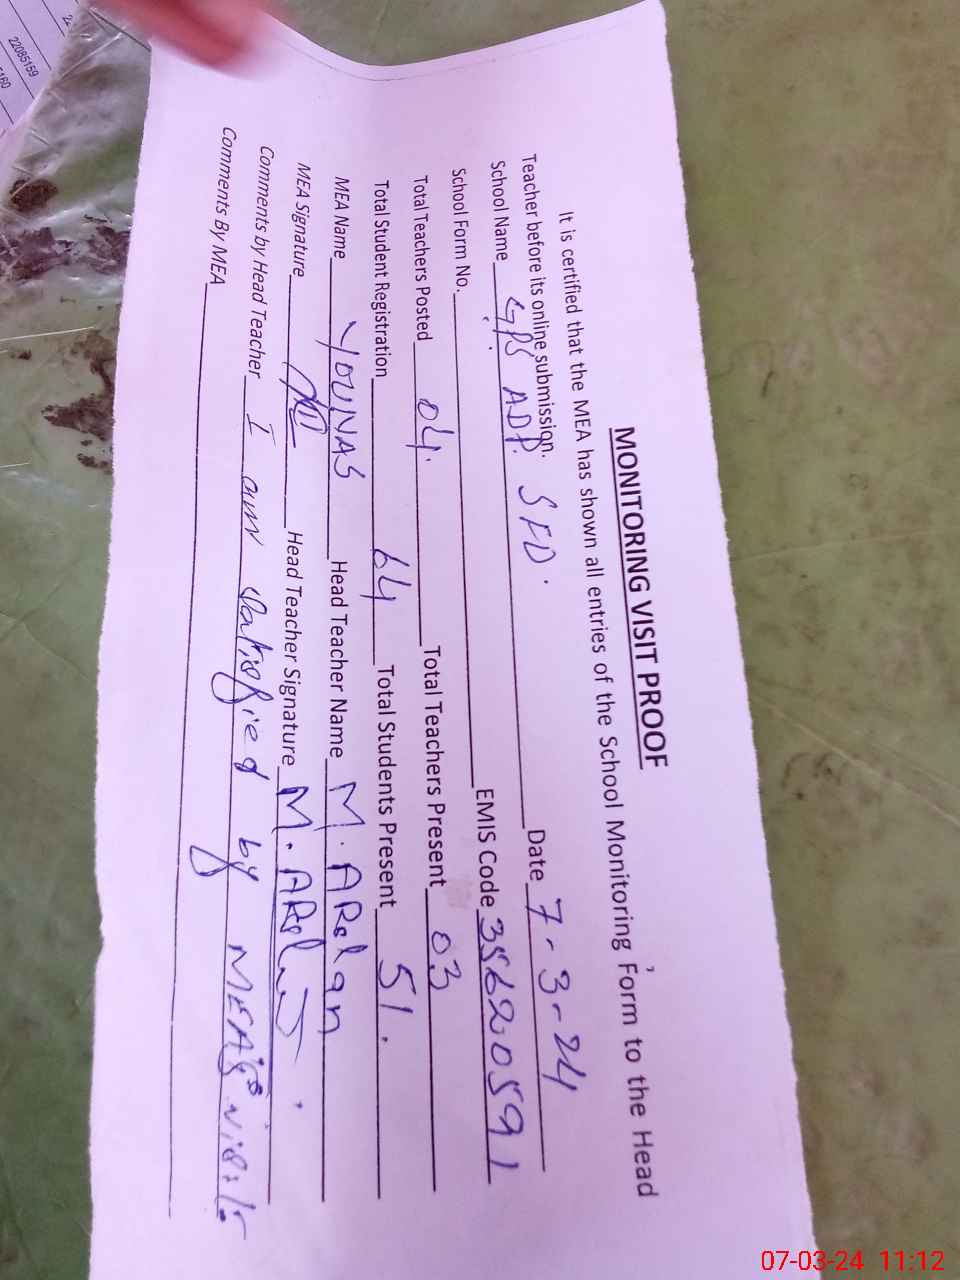 MONITORING VISIT PROOF
It is certified that the MEA has shown all entries of the School Monitoring Form to the Head
Teacher before its online submission.
School Name GPS ADP. SFD. Date 7-3-24
School Form No. EMIS Code 35620591
Total Teachers Posted 04. Total Teachers Present 03
Total Student Registration 64 Total Students Present 51.
MEA Name YOUNAS Head Teacher Name M. ARslan
MEA Signature Head Teacher Signature M. ARslan
Comments by Head Teacher I am satisfied by MEA's visit.
Comments By MEA
22085159
07-03-24 11:12